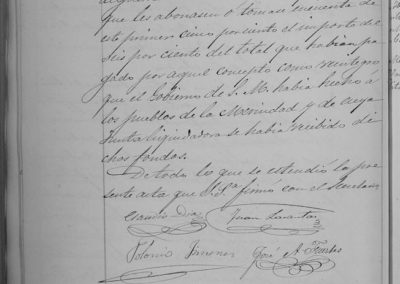 que les abonasen o tomase en cuenta de
este primer cinco por ciento el importe del
seis por ciento del total que habian pa-
gado por aquel concepto como reintegro
que el Gobierno de S. M. habia hecho a
los pueblos de la Merindad y de cuya
Junta liquidadora se habia recibido di-
chos fondos.
De todo lo que se estendió la pre-
sente acta que firmo con el Secretario
Claudio Diaz Juan
Polonio Jimenez José A. Fontes